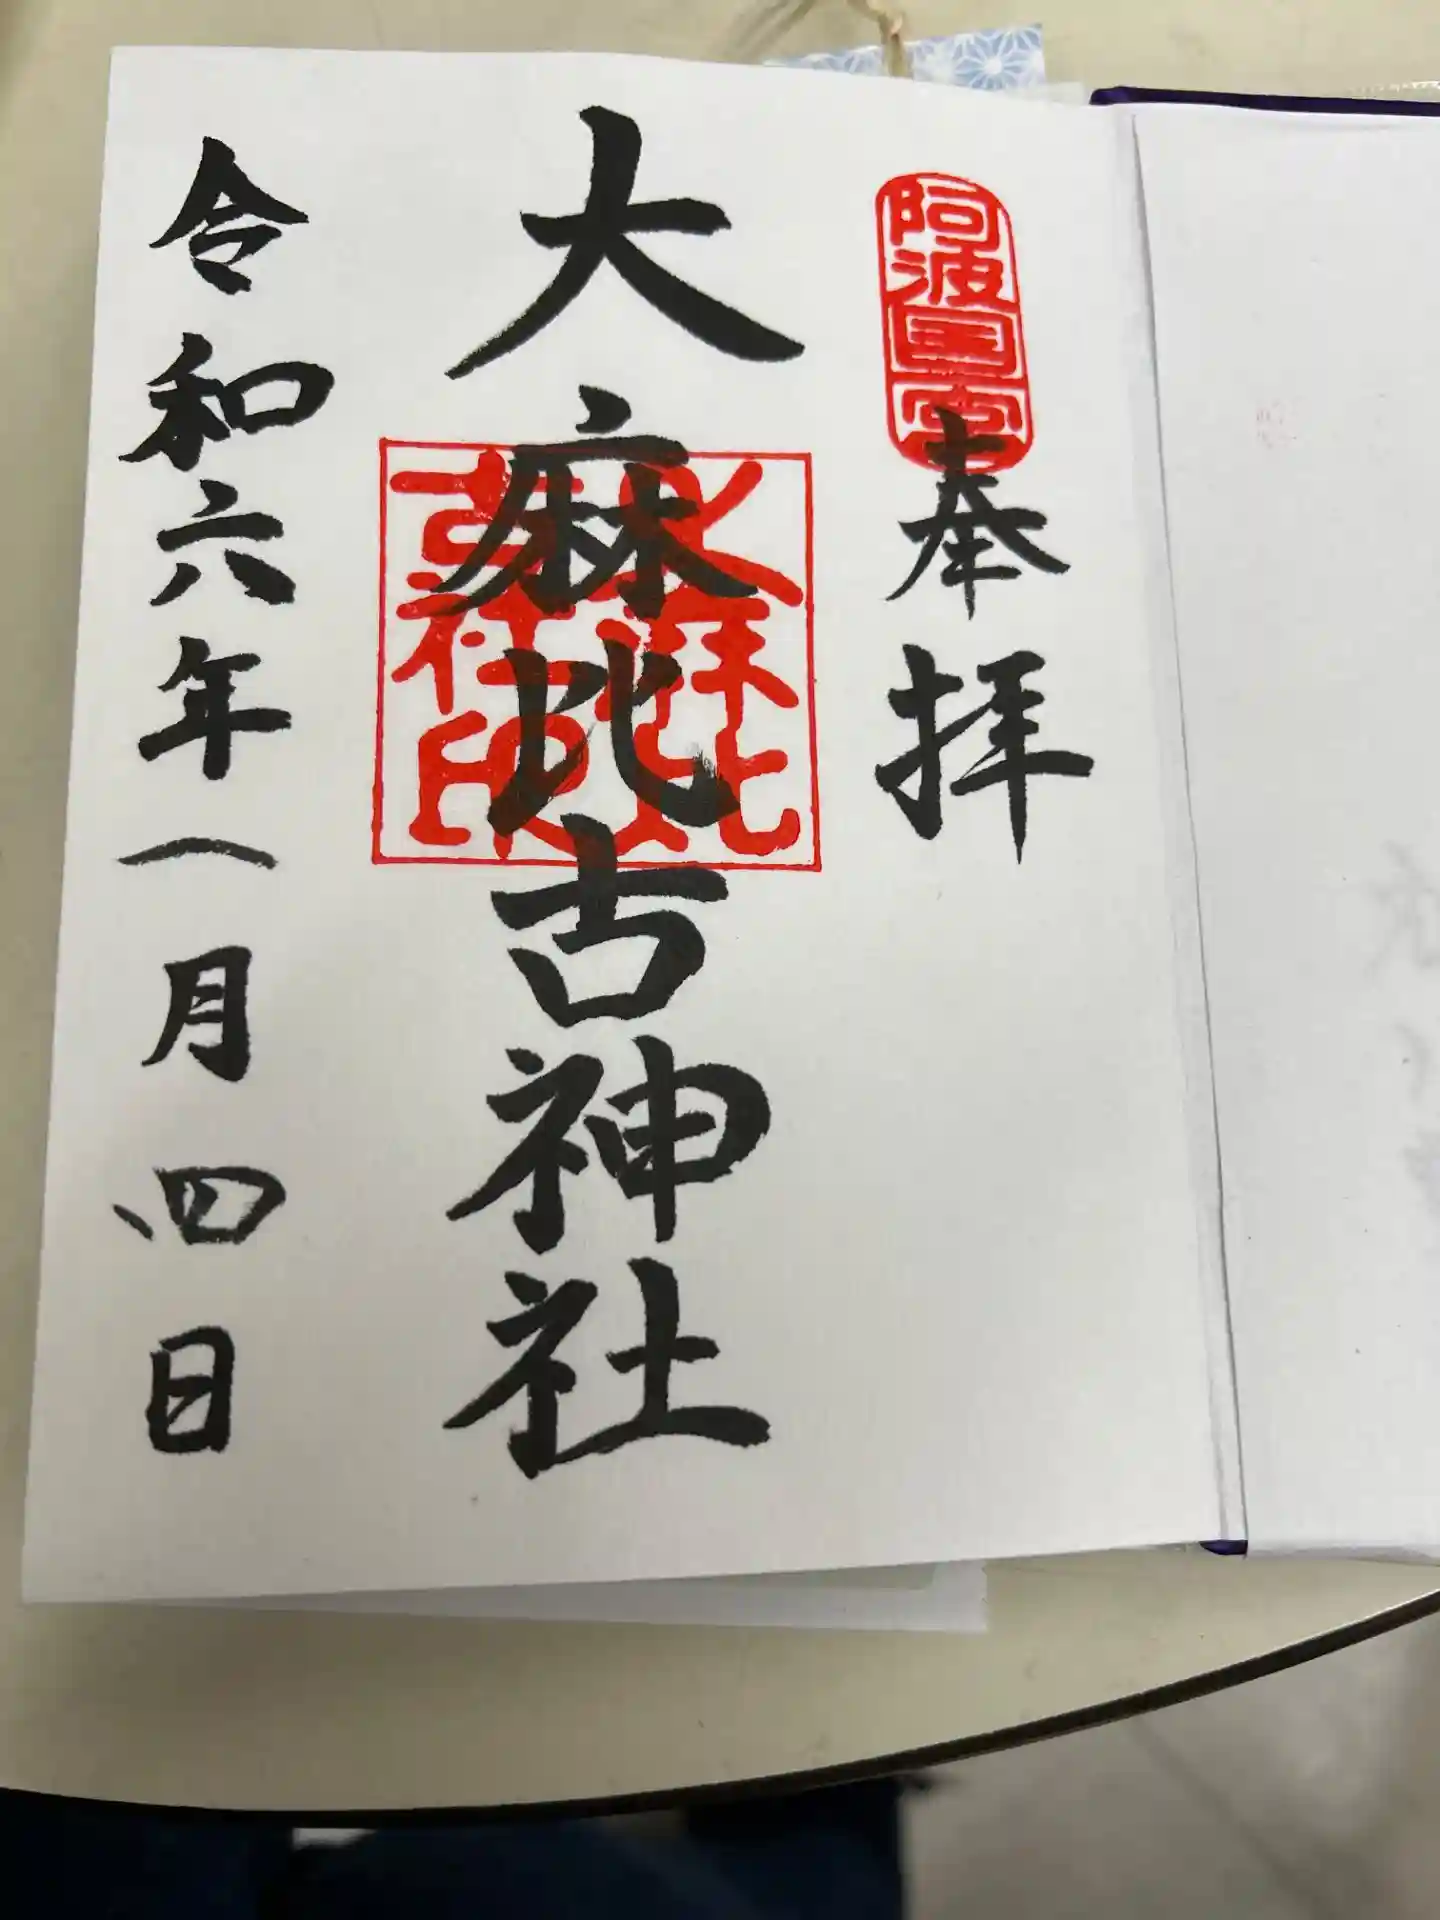 阿波国一宮
奉拝
大麻比古神社
大麻比古社印
令和六年一月四日